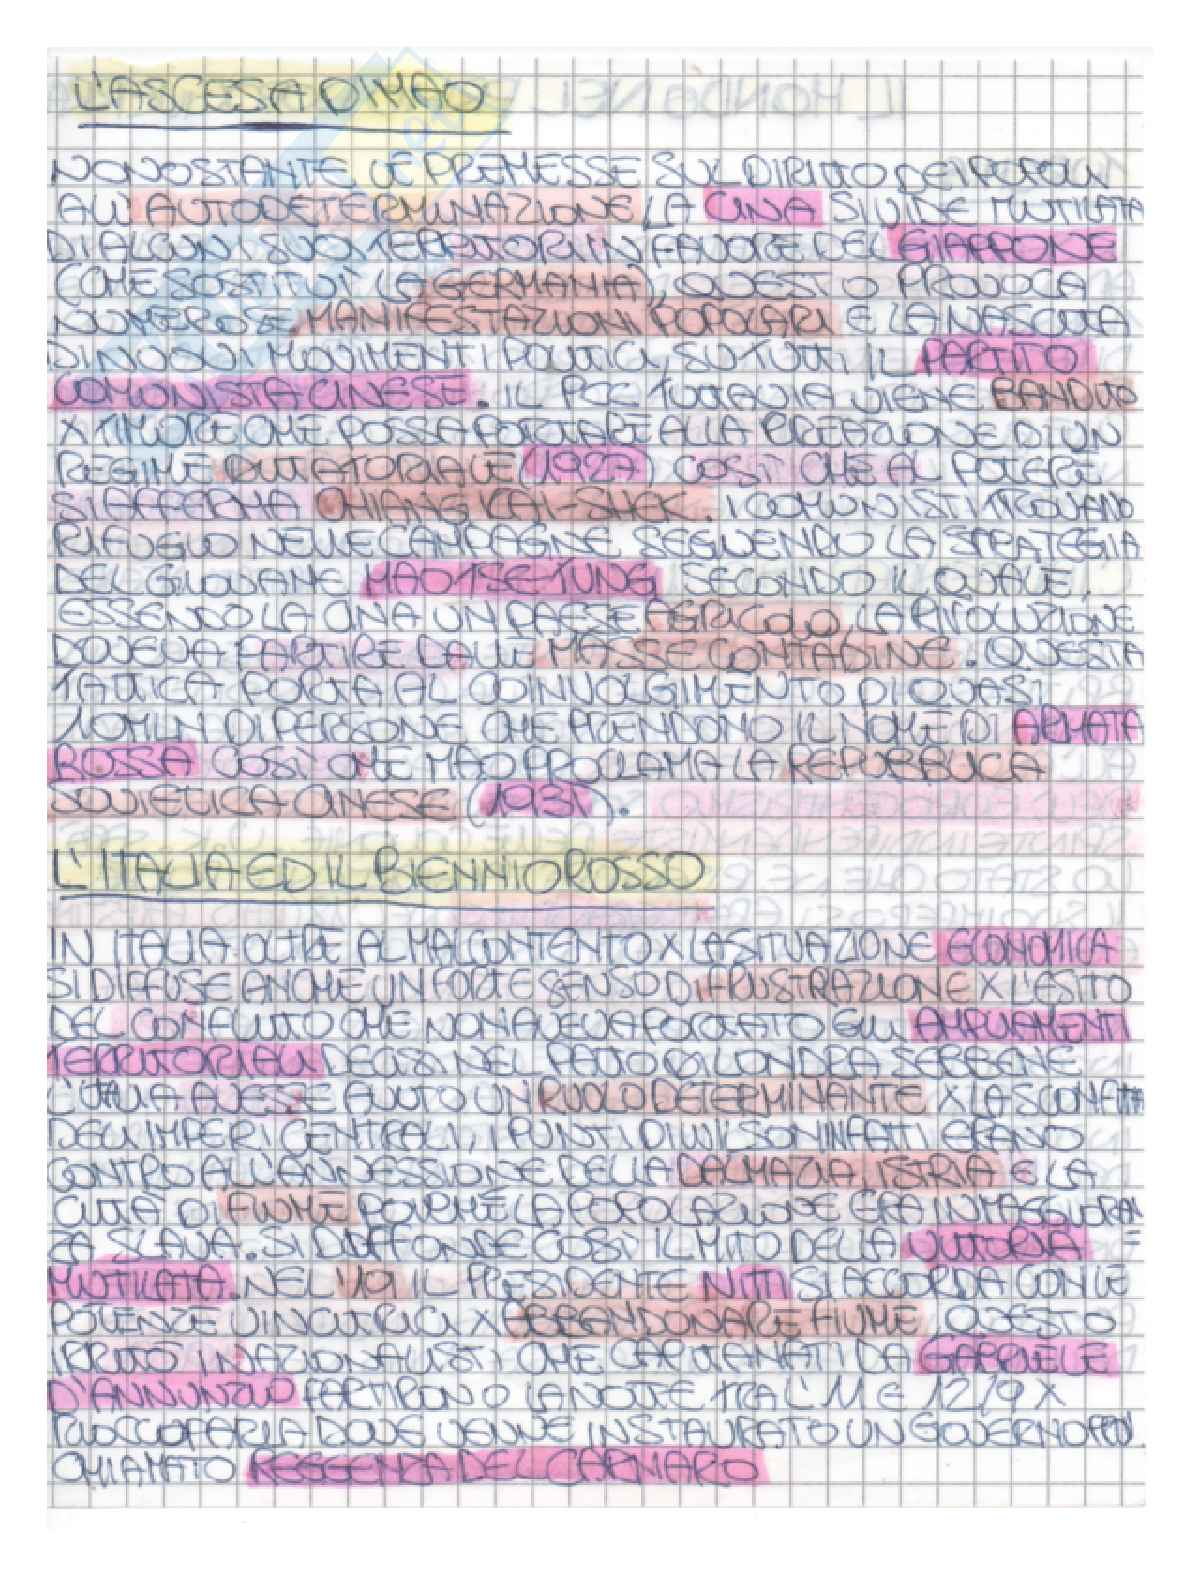 L'ASCESA DI MAO
NONOSTANTE LE PREMESSE SUL DIRITTO DEI POPOLI
ALL'AUTODETERMINAZIONE LA CINA SI VIDE MUTILATA
DI ALCUNI SUOI TERRITORI IN FAVORE DEL GIAPPONE
(CHE SOSTITUÌ LA GERMANIA), QUESTO PROVOCA
NUMEROSE MANIFESTAZIONI POPOLARI E LA NASCITA
DI NUOVI MOVIMENTI POLITICI, SU TUTTI IL PARTITO
COMUNISTA CINESE. IL PCC TUTTAVIA VIENE BANDITO
X TIMORE CHE POSSA PORTARE ALLA CREAZIONE DI UN
REGIME DITTATORIALE (1927) COSÌ CHE AL POTERE
SI AFFERMA CHIANG KAI-SHEK. I COMUNISTI TROVANO
RIFUGIO NELLE CAMPAGNE SEGUENDO LA STRATEGIA
DEL GIOVANE MAO TSE-TUNG, SECONDO IL QUALE,
ESSENDO LA CINA UN PAESE AGRICOLO, LA RIVOLUZIONE
DOVEVA PARTIRE DALLE MASSE CONTADINE. QUESTA
TATTICA PORTA AL COINVOLGIMENTO DI QUASI
1OMLN DI PERSONE CHE PRENDONO IL NOME DI ARMATA
ROSSA COSÌ CHE MAO PROCLAMA LA REPUBBLICA
SOVIETICA CINESE (1931).
L'ITALIA ED IL BIENNIO ROSSO
IN ITALIA OLTRE AL MALCONTENTO X LA SITUAZIONE ECONOMICA
SI DIFFUSE ANCHE UN FORTE SENSO DI FRUSTRAZIONE X L'ESITO
DEL CONFLITTO CHE NON AVEVA PORTATO GLI AMPLIAMENTI
TERRITORIALI DECISI NEL PATTO DI LONDRA SEBBENE
L'ITALIA AVESSE AVUTO UN RUOLO DETERMINANTE X LA SCONFITTA
DELL'IMPERI CENTRALI, I PUNTI DI WILSON INFATTI ERANO
CONTRO ALL'ANNESSIONE DELLA DALMAZIA, ISTRIA E LA
CITTÀ DI FIUME POICHÈ LA POPOLAZIONE ERA IN MAGGIORAN
ZA SLAVA. SI DIFFONDE COSÌ IL MITO DELLA VITTORIA
MUTILATA. NEL IL PRESIDENTE NITTI SI ACCORDA CON LE
POTENZE VINCITRICI X ABBANDONARE FIUME, QUESTO
IRRITÒ I NAZIONALISTI CHE CAPITANATI DA GABRIELE
D'ANNUNZIO PARTIRONO LA NOTTE TRA L'11 E 12/9 X
RIOCCUPARLA DOVE VENNE INSTAURATO UN GOVERNO
CHIAMATO REGGENZA DEL CARNARO